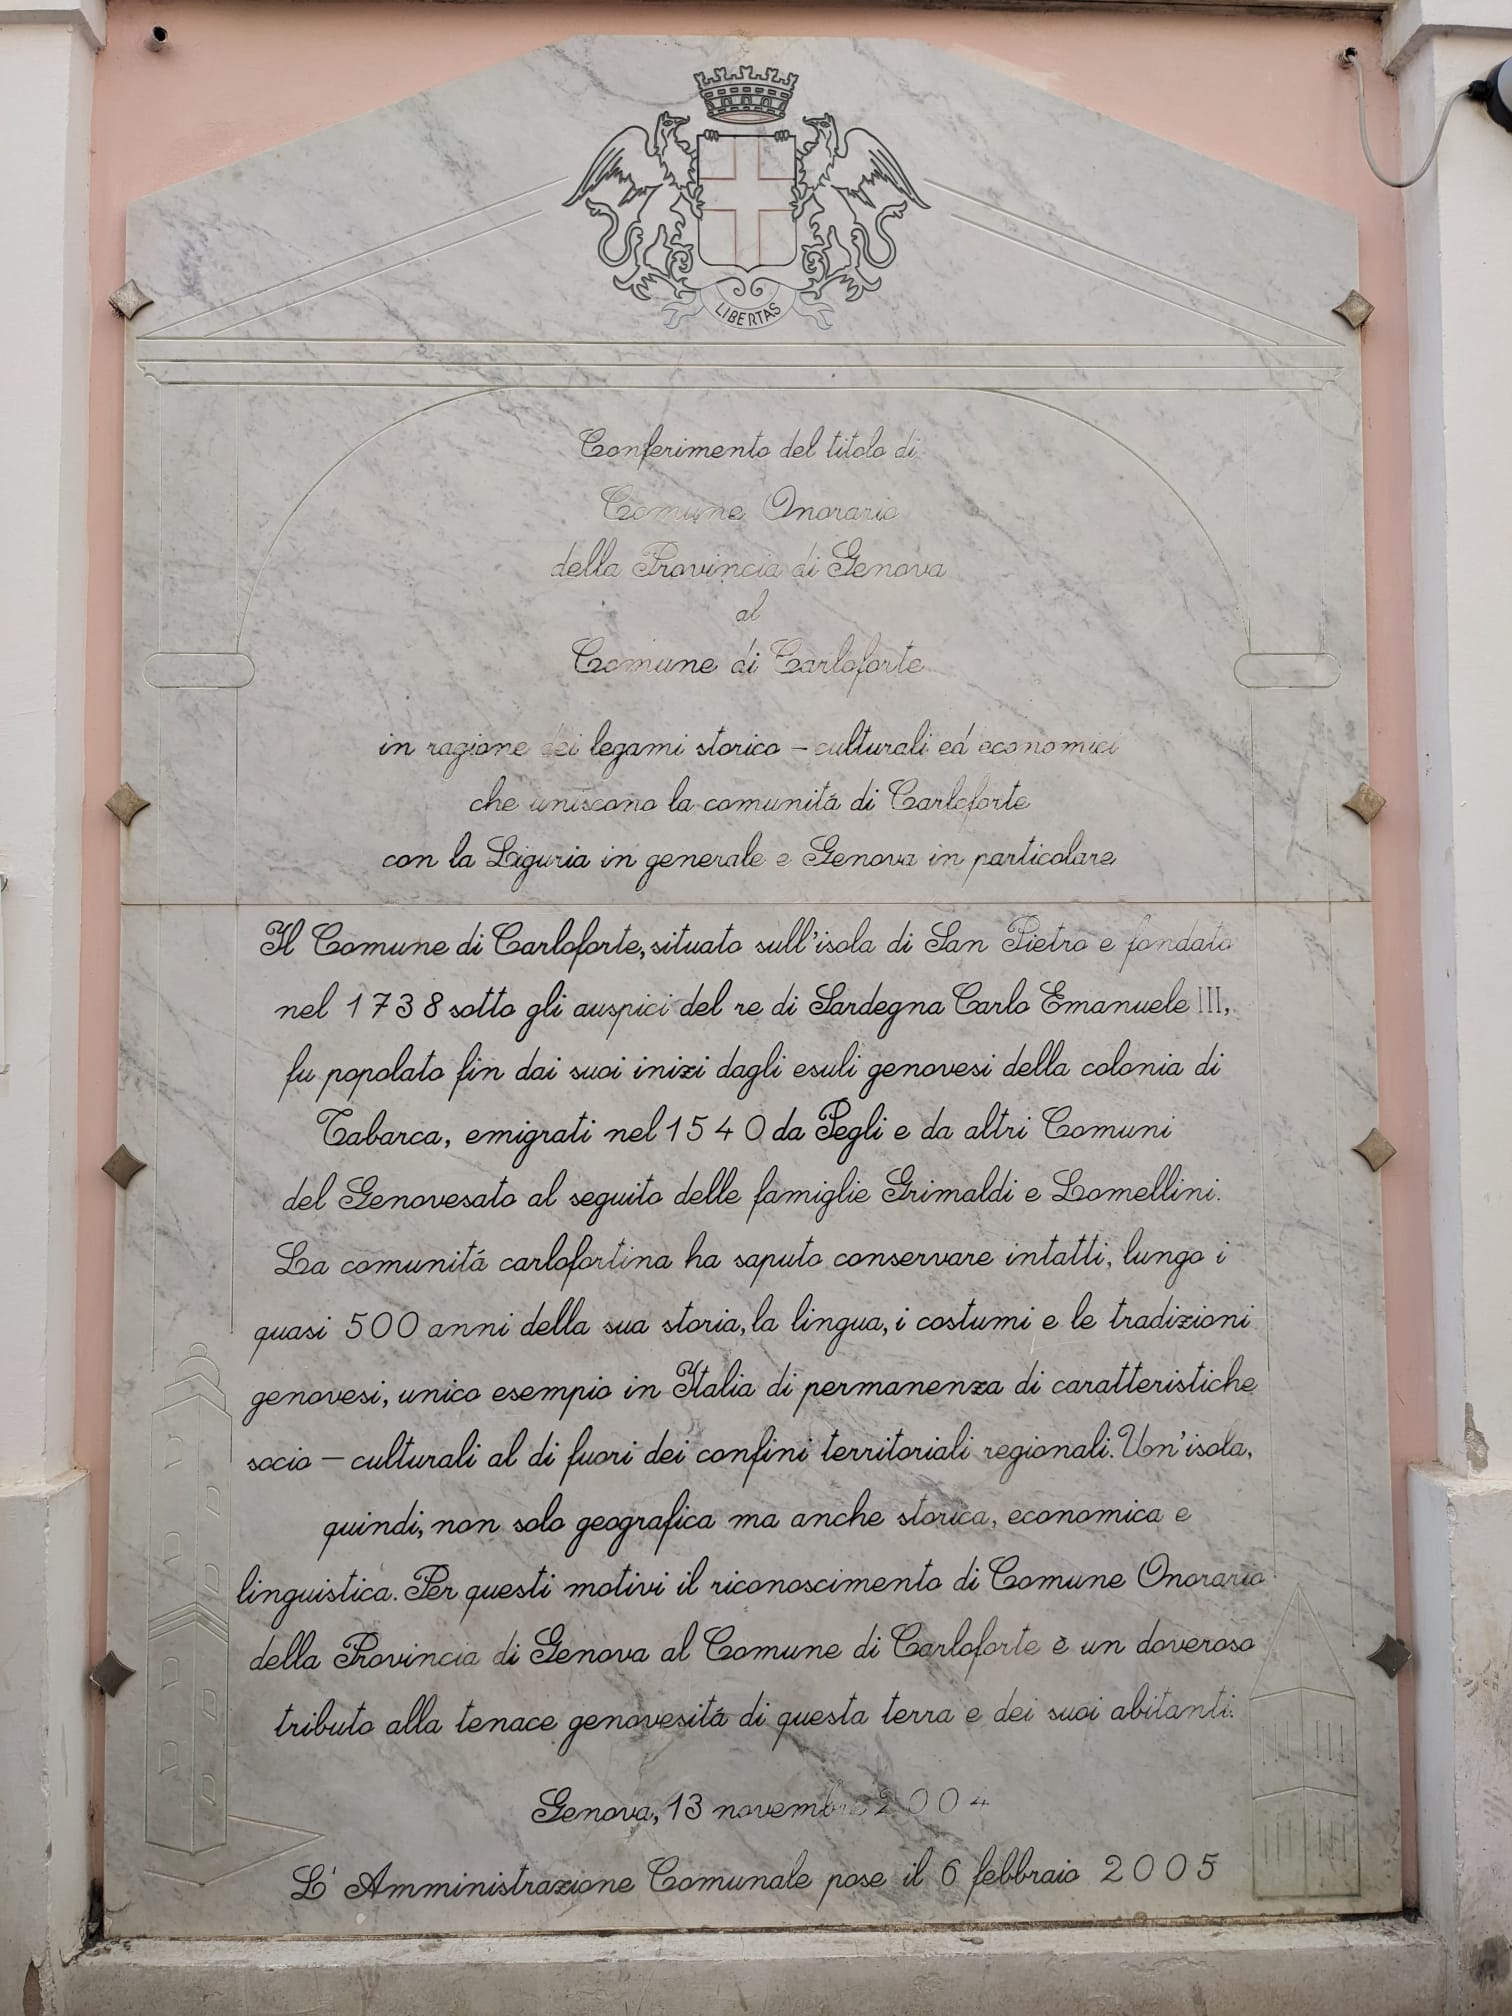 LIBERTAS
Conferimento del titolo di
Comune Onorario
della Provincia di Genova
al
Comune di Carloforte
in ragione dei legami storico - culturali ed economici
che uniscono la comunitá di Carloforte
con la Liguria in generale e Genova in particolare
Il Comune di Carloforte, situato sull'isola di San Pietro e fondato
nel 1738 sotto gli auspici del re di Sardegna Carlo Emanuele III,
fu popolato fin dai suoi inizi dagli esuli genovesi della colonia di
Tabarca, emigrati nel 1540 da Pegli e da altri Comuni
del Genovesato al seguito delle famiglie Grimaldi e Lomellini.
La comunitá carlofortina ha saputo conservare intatti, lungo i
quasi 500 anni della sua storia, la lingua, i costumi e le tradizioni
genovesi, unico esempio in Italia di permanenza di caratteristiche
socio - culturali al di fuori dei confini territoriali regionali. Un'isola,
quindi, non solo geografica ma anche storica, economica e
linguistica. Per questi motivi il riconoscimento di Comune Onorario
della Provincia di Genova al Comune di Carloforte è un doveroso
tributo alla tenace genovesitá di questa terra e dei suoi abitanti.
Genova, 13 novembre 2004
L' Amministrazione Comunale pose il 6 febbraio 2005